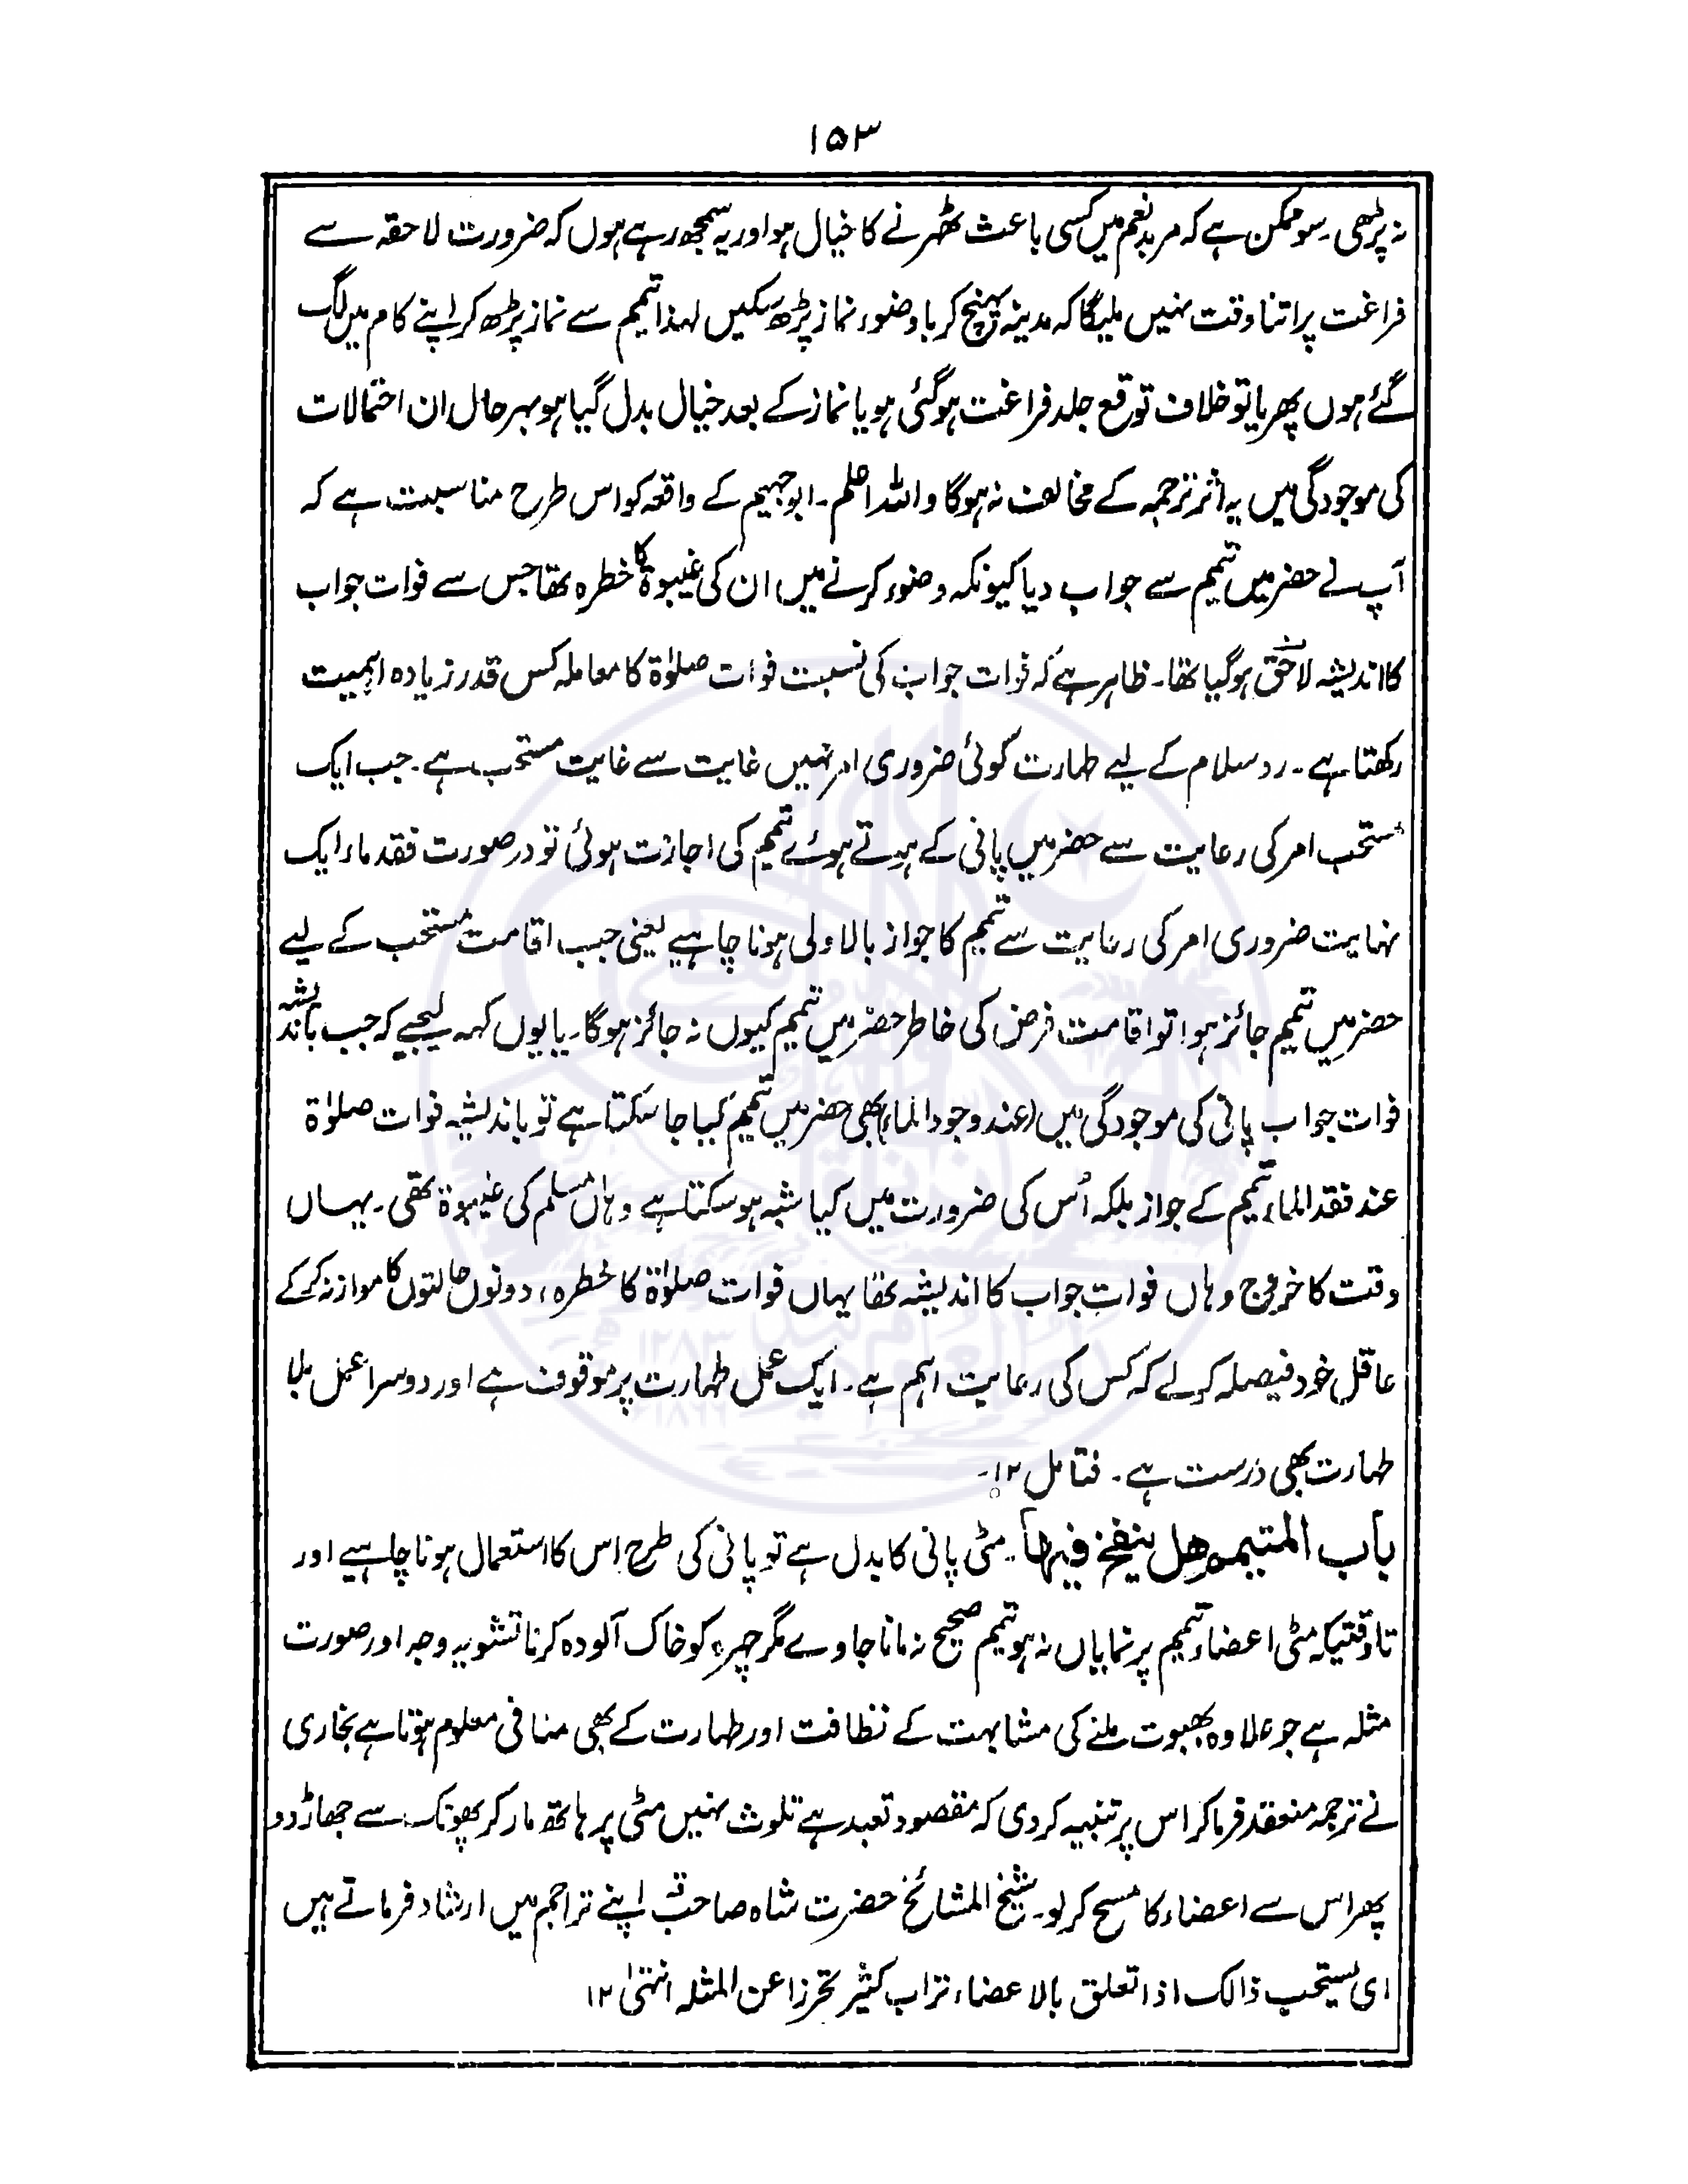 ۱۵۳
نہ پڑھی۔ سو ممکن ہے کہ مربد نعم میں کسی باعث ٹھہرنے کا خیال ہو اور یہ سمجھ رہے ہوں کہ ضرورت لاحقہ سے
فراغت پر اتنا وقت نہیں ملیگا کہ مدینہ پہنچ کر با وضوء نماز پڑھ سکیں لہذا تیمم سے نماز پڑھ کر اپنے کام میں لگ
گئے ہوں پھر یا تو خلاف توقع جلد فراغت ہوگئی ہو یا نماز کے بعد خیال بدل گیا ہو بہر حال ان احتمالات
کی موجودگی میں یہ اثر ترجمہ کے مخالف نہ ہوگا واللہ اعلم۔ ابو جہیم کے واقعہ کو اس طرح مناسبت ہے کہ
آپ نے حضر میں تیمم سے جواب دیا کیونکہ وضوء کرنے میں ان کی غیبوۃ کا خطرہ تھا جس سے فوات جواب
کا اندیشہ لاحق ہوگیا تھا۔ ظاہر ہے کہ فوات جواب کی نسبت فوات صلوٰۃ کا معاملہ کس قدر زیادہ اہمیت
رکھتا ہے۔ رد سلام کے لیے طہارت کوئی ضروری امر نہیں غایت سے غایت مستحب ہے۔ جب ایک
مستحب امر کی رعایت سے حضر میں پانی کے ہوتے ہوئے تیمم کی اجازت ہوئی تو در صورت فقد ماء ایک
نہایت ضروری امر کی رعایت سے تیمم کا جواز بالاولی ہونا چاہیے یعنی جب اقامت مستحب کے لیے
حضر میں تیمم جائز ہوا تو اقامت فرض کی خاطر حضر میں تیمم کیوں نہ جائز ہوگا۔ یا یوں کہہ لیجیے کہ جب باندیشہ
فوات جواب پانی کی موجودگی میں (عند وجود الماء) بھی حضر میں تیمم کیا جا سکتا ہے تو باندیشہ فوات صلوٰۃ
عند فقد الماء تیمم کے جواز بلکہ اُس کی ضرورت میں کیا شبہ ہو سکتا ہے وہاں مسلم کی غیبوۃ تھی۔ یہاں
وقت کا خروج وہاں فوات جواب کا اندیشہ تھا یہاں فوات صلوٰۃ کا خطرہ، دونوں حالتوں کا موازنہ کر کے
عاقل خود فیصلہ کر لے کہ کس کی رعایت اہم ہے۔ ایک عمل طہارت پر موقوف ہے اور دوسرا عمل بلا
طہارت بھی درست ہے۔ فتامل ۱۲۔
باب المتیمم ھل ینفخ فیہا۔ مٹی پانی کا بدل ہے تو پانی کی طرح اس کا استعمال ہونا چاہیے اور
تا وقتیکہ مٹی اعضاء تیمم پر نمایاں نہ ہو تیمم صحیح نہ مانا جاوے مگر چہرہ کو خاک آلودہ کرنا تشویہ وجہ اور صورت
مثلہ ہے جو علاوہ بھبوت ملنے کی مشابہت کے نظافت اور طہارت کے بھی منافی معلوم ہوتا ہے بخاری
نے ترجمہ منعقد فرما کر اس پر تنبیہ کر دی کہ مقصود تعبد ہے تلوث نہیں مٹی پر ہاتھ مار کر پھونک سے جھاڑ دو
پھر اس سے اعضاء کا مسح کر لو۔ شیخ المشائخ حضرت شاہ صاحبؒ اپنے تراجم میں ارشاد فرماتے ہیں
ای یستحب ذالک اذا تعلق بالاعضاء تراب کثیر تحرزا عن المثلہ انتہیٰ ۱۲